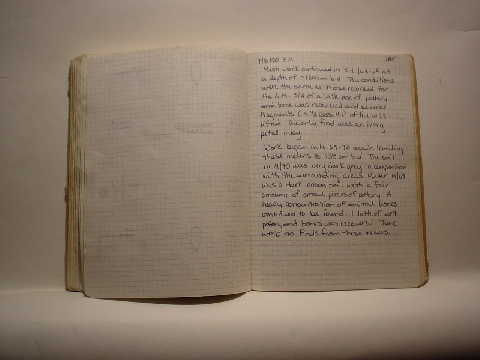 7/16/90 P.M.
Work continued in
a depth of ~130cm b.d. The conditions
were the same as those recorded for
the A.M. 3/4 of a latte box of pottery
and bone was recovered and several
fragments
The only find was an ivory
petal inlay.
Work began in M 69-70 again leveling
these meters to b.d. The soil
in M/70 was very dark grey in comparison
with the surrounding areas. Meter M/69
was a dark brown soil with a fair
amount of small pieces of pottery. A
heavy concentration of animal bones
continued to be found. 1 latte of both
pottery and bones was recovered. There
were no finds from these meters.